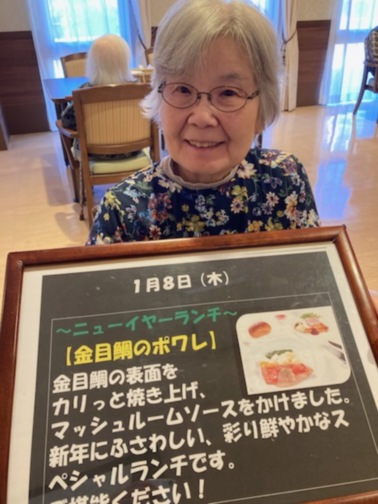 1月8日（木）
～ニューイヤーランチ～
【金目鯛のポワレ】
金目鯛の表面を
カリっと焼き上げ、
マッシュルームソースをかけました。
新年にふさわしい、彩り鮮やかなス
ペシャルランチです。
ご堪能ください！